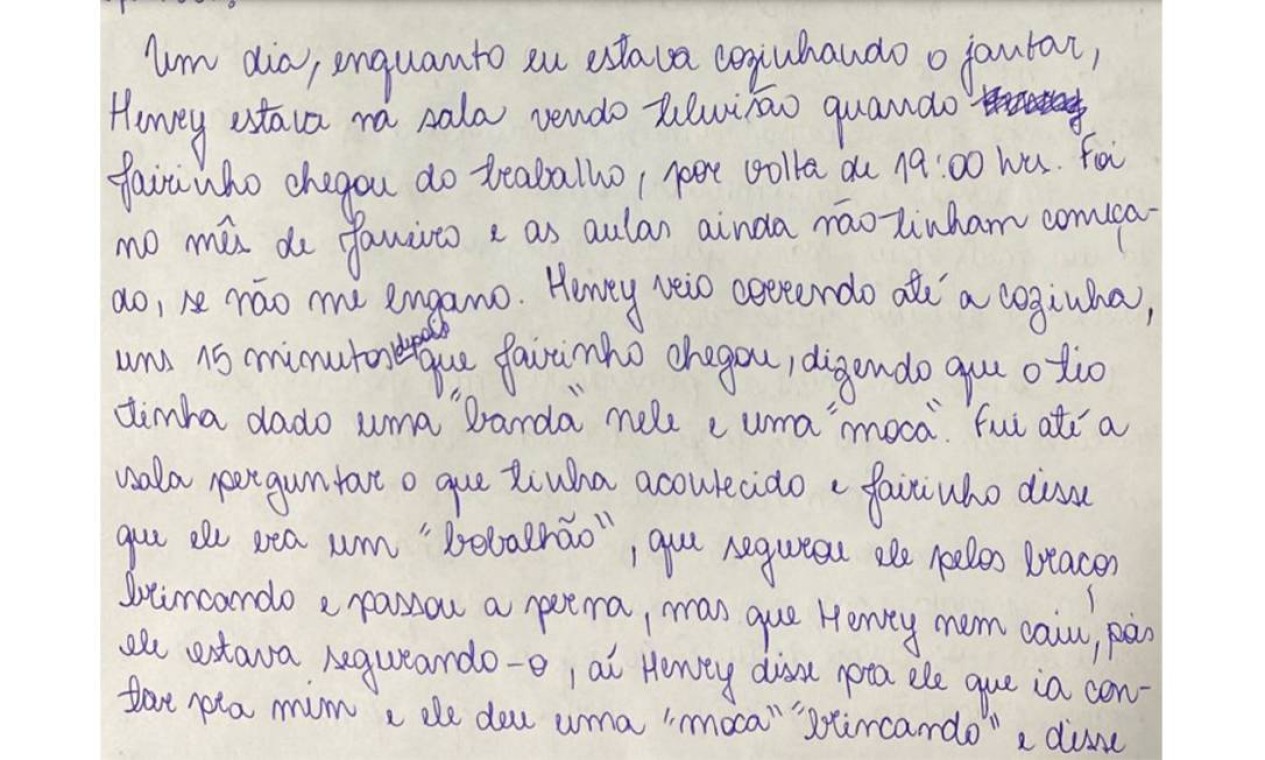 Um dia, enquanto eu estava cozinhando o jantar,
Henry estava na sala vendo televisão quando
Jairinho chegou do trabalho, por volta de 19:00 hrs. Foi
no mês de Janeiro e as aulas ainda não tinham começa-
do, se não me engano. Henry veio correndo até a cozinha,
uns 15 minutos depois que Jairinho chegou, dizendo que o tio
tinha dado uma "banda" nele e uma "moca". Fui até a
sala perguntar o que tinha acontecido e Jairinho disse
que ele era um "bobalhão", que segurou ele pelos braços
brincando e passou a perna, mas que Henry nem caiu, pois
ele estava segurando-o, aí Henry disse pra ele que ia con-
tar pra mim e ele deu uma "moca" "brincando" e disse